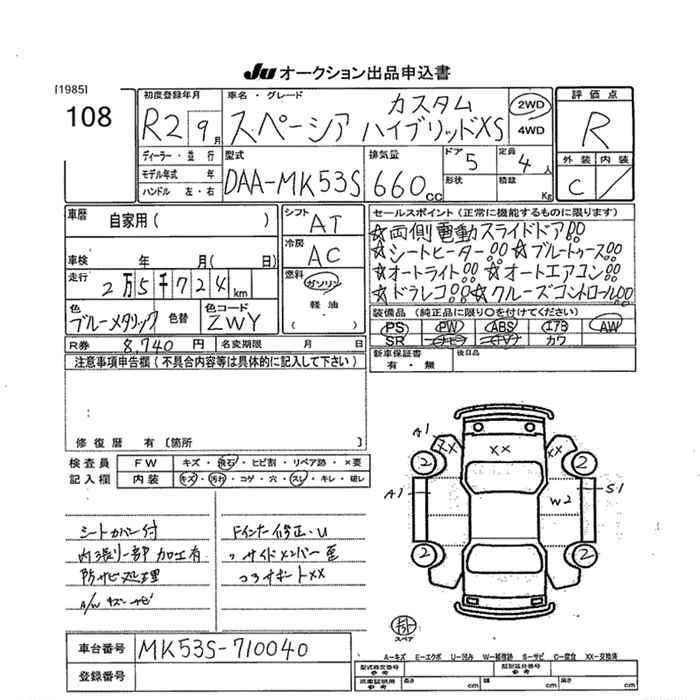 Ju オークション出品申込書
[1985]
108
初度登録年月
R2 9月
車名・グレード
カスタム
スペーシア ハイブリッドXS
2WD
4WD
評価点
R
外装 内装
C
ディーラー・並行
モデル年式 年
ハンドル 左・右
型式
DAA-MK53S
排気量
660cc
ドア
5
定員
4人
形状
積載
Kg
車歴 自家用 ( )
車検 年 月( 日)
走行 2万5千724km
色
ブルーメタリック
色替
色コード
ZWY
シフト
AT
冷房
AC
燃料
ガソリン
軽油
セールスポイント (正常に機能するものに限ります)
☆両側電動スライドドア!!
☆シートヒーター!! ☆ブルートゥース!!
☆オートライト!! ☆オートエアコン!!
☆ドラレコ!! ☆クルーズコントロール!!
装備品 (純正品に限り○を付けてください)
PS PW ABS エアB AW
SR ナビ TV カワ
R券 8,740 円 名変期限 月 日
新車保証書
有・無
後日品
注意事項申告欄 (不具合内容等は具体的に記入して下さい)
修復歴 有 [箇所 ]
検査員
記入欄
FW キズ・飛石・ヒビ割・リペア跡・×要
内装 キズ・汚れ・コゲ・穴・スレ・キレ・破レ
シートカバー付
内張り一部加工有
防サビ処理
A/W キズ サビ
Fインナー修正・U
〃サイドメンバー 歪
コアサポートXX
A1
XX
XX
XX
2
2
A1
W2
S1
2
2
スペア
車台番号 MK53S-710040
登録番号
A-キズ E-エクボ U-凹み W-補修跡 S-サビ C-腐食 XX-交換済
型式指定番号
参考
類別区分番号
参考
車庫証明用
参考
長さ cm 幅 cm 高さ cm